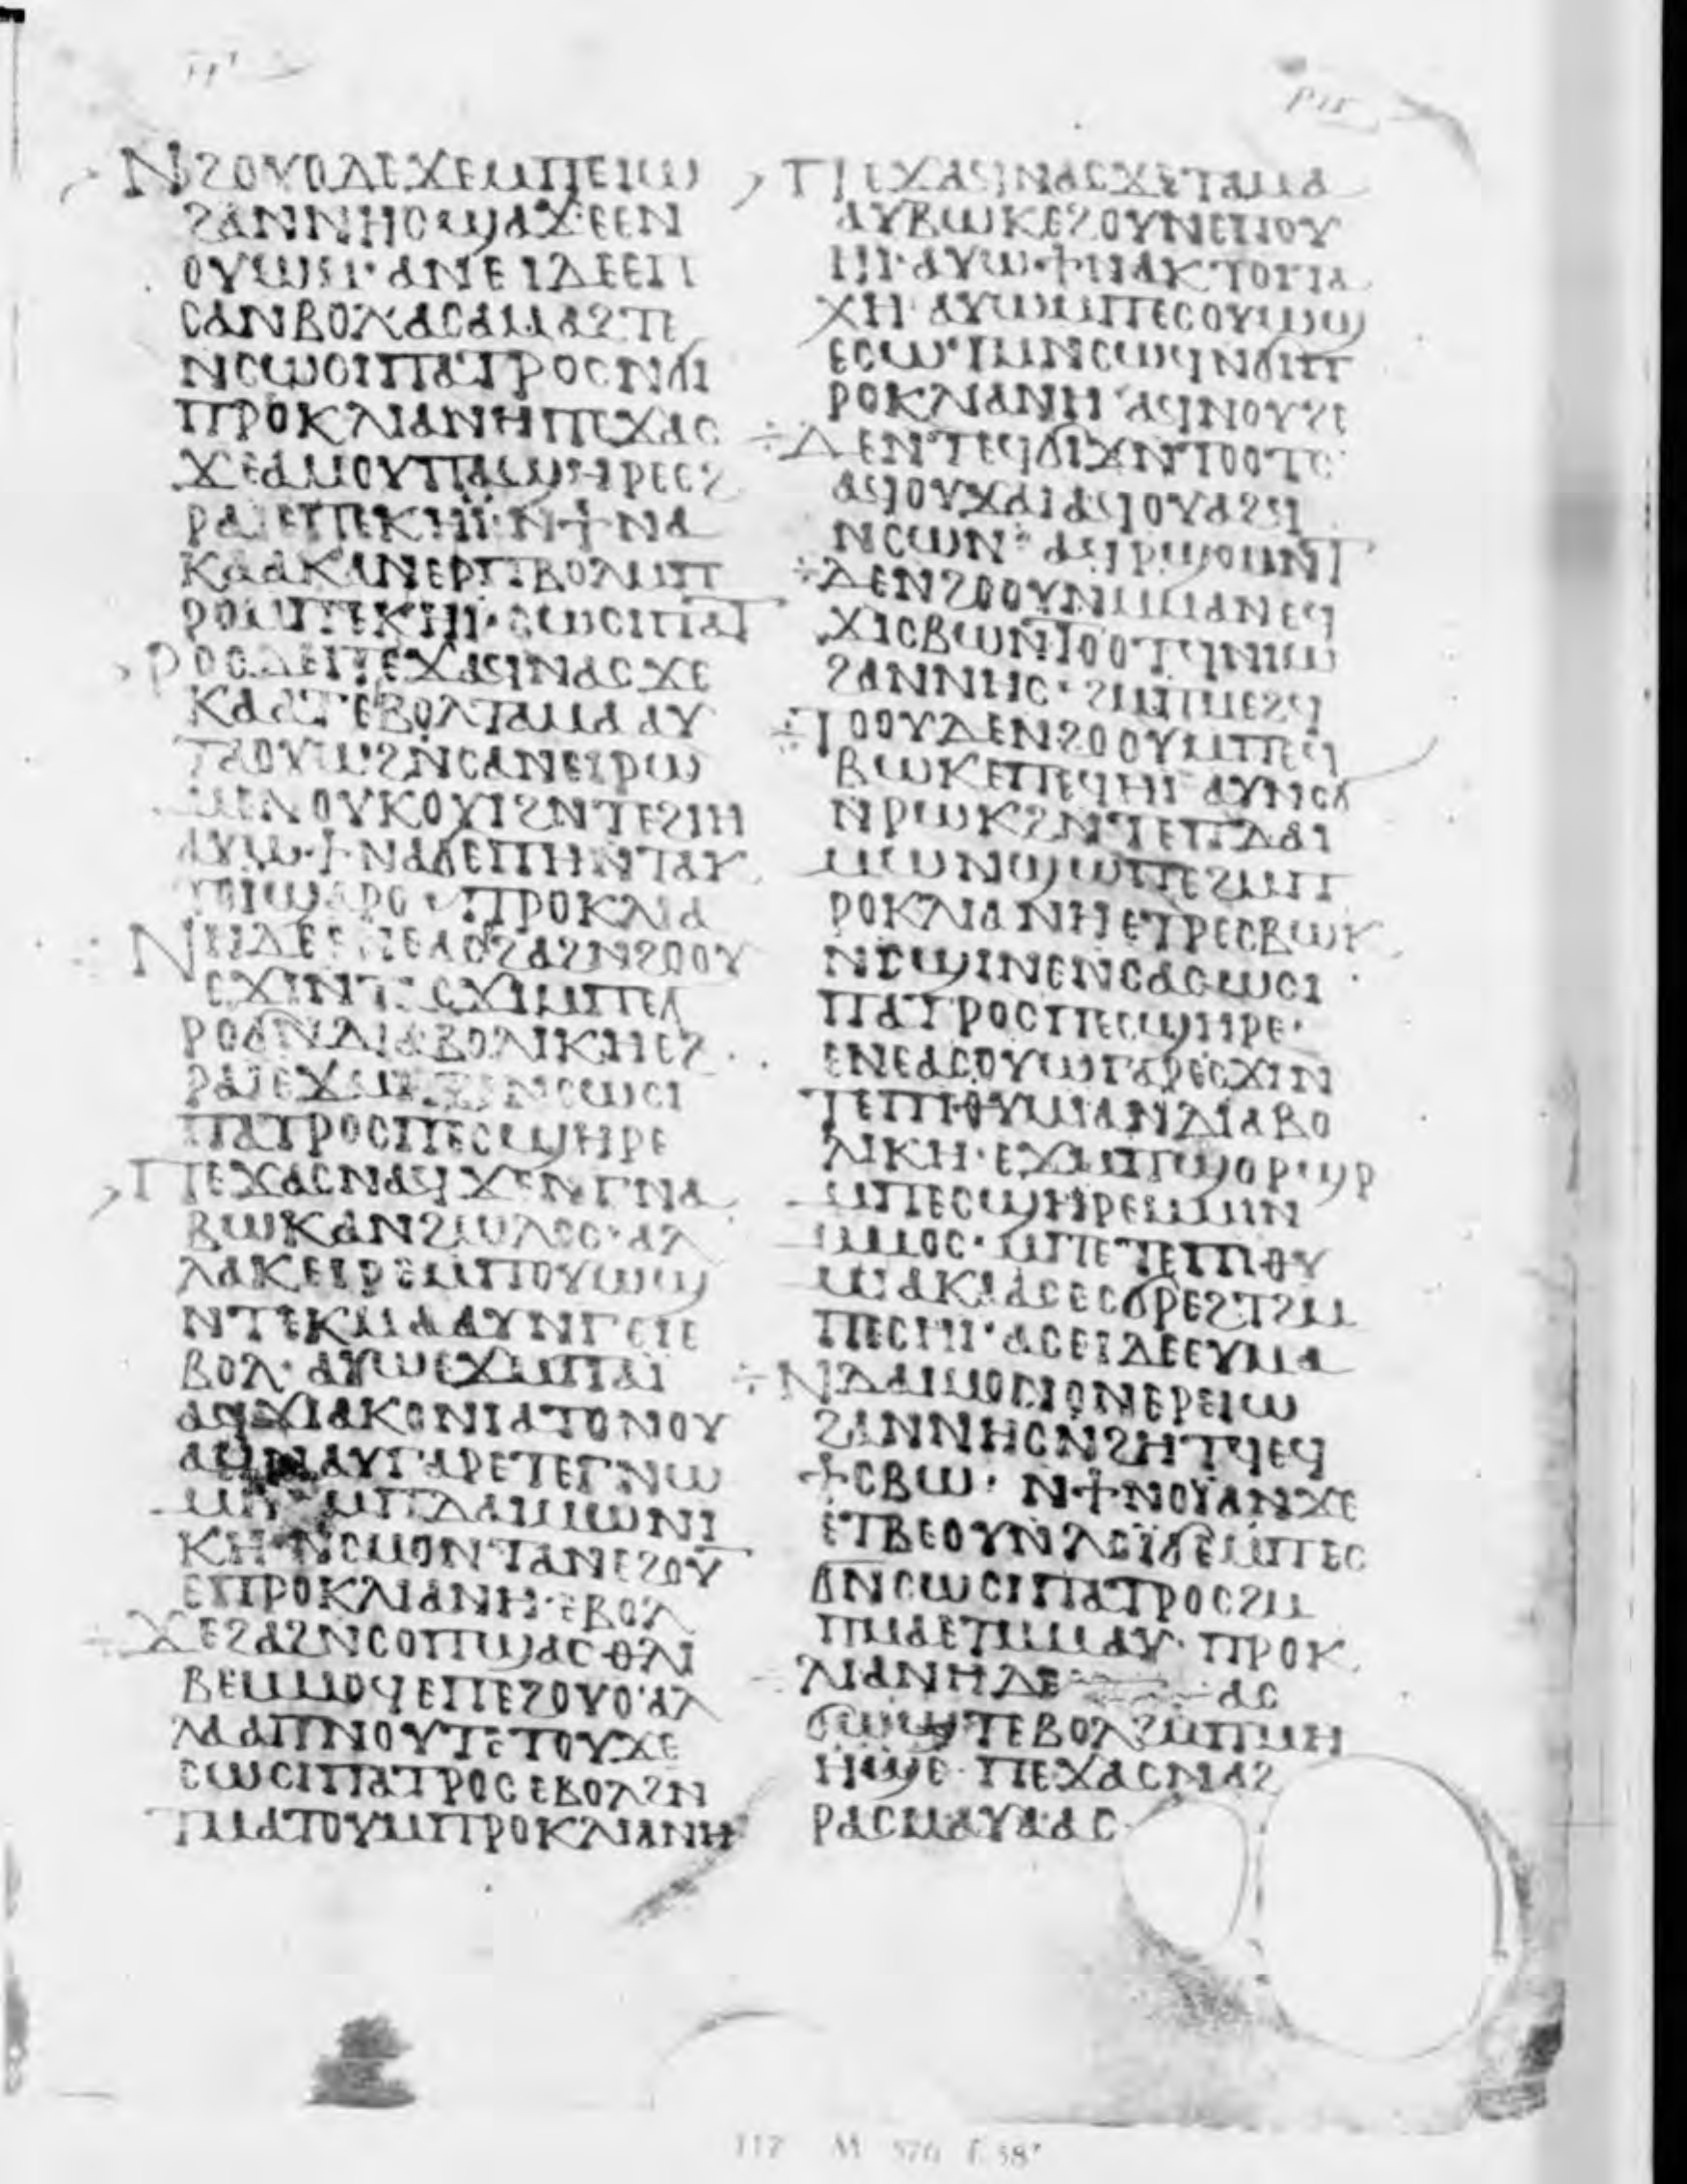 ⲛϩⲟⲩⲟⲇⲉϫⲉⲙⲡⲉⲓⲱ
ϩⲁⲛⲛⲏⲥϣⲁϫⲉⲉⲛ
ⲟⲩⲱϣⲧ·ⲁⲛⲉⲓⲇⲉⲉⲡ
ⲥⲁⲛⲃⲟⲗⲁⲥⲁⲙⲁϩⲧⲉ
ⲛⲥⲱⲥⲓⲡⲁⲧⲣⲟⲥⲛϭⲓ
ⲡⲣⲟⲕⲗⲓⲁⲛⲏⲡⲉϫⲁⲥ
ϫⲉⲁⲙⲟⲩⲡⲁϣⲏⲣⲉⲉϩ
ⲣⲁⲓⲉⲡⲉⲕⲏⲓ̈·ⲛϯⲛⲁ
ⲕⲁⲁⲕⲁⲛⲉⲣⲡⲃⲟⲗⲙⲡ
ⲣⲟⲙⲡⲉⲕⲏⲓ·ⲥⲱⲥⲓⲡⲁⲧ
ⲣⲟⲥⲇⲉⲡⲉϫⲁϥⲛⲁⲥϫⲉ
ⲕⲁⲁⲧⲉⲃⲟⲗⲧⲁⲙⲁⲁⲩ
ⲧⲁⲟⲩⲱϩⲛⲥⲁⲛⲉⲓⲣⲱ
ⲙⲉⲛⲟⲩⲕⲟⲩⲓϩⲛⲧⲉϩⲓⲏ
ⲁⲩⲱ·ϯⲛⲁϭⲉⲡⲏⲛⲧⲁⲕ
ⲧⲟⲓϣⲁⲣⲟ·ⲡⲣⲟⲕⲗⲓⲁ
ⲛⲏⲇⲉ ⲛⲉⲁⲥϩⲁϩⲛϩⲟⲟⲩ
ⲉϫⲓⲛⲧ ⲉϫⲓⲙⲡⲉⲗ
ⲣⲟⲥⲛⲇⲓⲁⲃⲟⲗⲓⲕⲏⲉϩ
ⲣⲁⲓⲉϫⲙ ⲛⲥⲱⲥⲓ
ⲡⲁⲧⲣⲟⲥⲡⲉⲥϣⲏⲣⲉ
ⲡⲉϫⲁⲥⲛⲁϥϫⲉⲛⲅⲛⲁ
ⲃⲱⲕⲁⲛϩⲟⲗⲱⲥ·ⲁⲗ
ⲗⲁⲕⲉⲓⲣⲉⲙⲡⲟⲩⲱϣ
ⲛⲧⲉⲕⲙⲁⲁⲩⲛⲅⲉⲓⲉ
ⲃⲟⲗ·ⲁⲩⲱⲉϫⲙⲡⲁⲓ̈
ⲁϥⲇⲓⲁⲕⲟⲛⲓⲁⲧⲟⲛⲟⲩ
ⲁϥⲛⲁⲩⲅⲁⲣⲉⲧⲉⲅⲛⲱ
ⲙⲏ ⲙⲡⲇⲁⲓⲙⲱⲛⲓ
ⲕⲏ·ⲛⲥⲙⲟⲛⲧⲁⲛⲉϩⲟⲩ
ⲉⲡⲣⲟⲕⲗⲓⲁⲛⲏ·ⲉⲃⲟⲗ
ϫⲉϩⲁϩⲛⲥⲟⲡϣⲁⲥⲑⲗⲓ
ⲃⲉⲙⲙⲟϥⲉⲡⲉϩⲟⲩⲟ·ⲁⲗ
ⲗⲁⲁⲡⲛⲟⲩⲧⲉⲧⲟⲩϫⲉ
ⲥⲱⲥⲓⲡⲁⲧⲣⲟⲥⲉⲃⲟⲗϩⲛ
ⲧⲙⲁⲧⲟⲩⲙⲡⲣⲟⲕⲗⲓⲁⲛⲏ
ⲡⲉϫⲁϥⲛⲁⲥϫⲉⲧⲁⲙⲁ
ⲁⲩⲃⲱⲕⲉϩⲟⲩⲛⲉⲡⲟⲩ
ⲏⲓ·ⲁⲩⲱϯⲛⲁⲕⲧⲟⲓⲧⲁ
ⲭⲏ·ⲁⲩⲱⲙⲡⲉⲥⲟⲩⲱϣ
ⲉⲥⲱⲧⲙⲛⲥⲱϥⲛϭⲓⲡ
ⲣⲟⲕⲗⲓⲁⲛⲏ·ⲁϥⲛⲟⲩϩⲉ
ⲇⲉⲛⲧⲉϥϭⲓϫⲛⲧⲟⲟⲧⲥ
ⲁϥⲟⲩϫⲁⲓⲁϥⲟⲩⲁϩϥ
ⲛⲥⲱⲛ·ⲁϥⲣϣⲟⲙⲛⲧ
ⲇⲉⲛϩⲟⲟⲩⲛⲙⲙⲁⲛⲉϥ
ϫⲓⲥⲃⲱⲛⲧⲟⲟⲧϥⲛⲓⲱ
ϩⲁⲛⲛⲏⲥ·ϩⲙⲡⲙⲉϩϥ
ⲧⲟⲟⲩⲇⲉⲛϩⲟⲟⲩⲙⲡⲉϥ
ⲃⲱⲕⲉⲡⲉϥⲏⲓ ⲁⲩⲛⲟϭ
ⲛⲣⲱⲕϩⲛⲧⲉⲡⲇⲁⲓ
ⲙⲱⲛϣⲱⲡⲉϩⲙⲡ
ⲣⲟⲕⲗⲓⲁⲛⲏⲉⲧⲣⲉⲥⲃⲱⲕ
ⲛⲥϣⲓⲛⲉⲛⲥⲁⲥⲱⲥⲓ
ⲡⲁⲧⲣⲟⲥⲡⲉⲥϣⲏⲣⲉ·
ⲉⲛⲉⲁⲥⲟⲩⲱⲅⲁⲣⲉⲥϫⲓⲛ
ⲧⲉⲡⲓⲑⲩⲙⲓⲁⲛⲇⲓⲁⲃⲟ
ⲗⲓⲕⲏ·ⲉϫⲙⲡϣⲟⲣϣⲣ
ⲙⲡⲉⲥϣⲏⲣⲉⲙⲙⲓⲛ
ⲙⲙⲟⲥ·ⲙⲡⲉⲧⲉⲡⲓⲑⲩ
ⲙⲓⲁⲕⲁⲁⲥⲉⲥϭⲣⲉϩⲧϩⲙ
ⲡⲉⲥⲏⲓ·ⲁⲥⲉⲓⲇⲉⲉⲩⲙⲁ
ⲛⲇⲁⲓⲙⲟⲛⲓⲟⲛⲉⲣⲉⲓⲱ
ϩⲁⲛⲛⲏⲥⲛϩⲏⲧϥⲉϥ
ϯⲥⲃⲱ· ⲛϯⲛⲟⲩⲁⲛϫⲉ
ⲉⲧⲃⲉⲟⲩⲛⲗⲟⲓ̈ϭⲉⲙⲡⲉⲥ
ϭⲛⲥⲱⲥⲓⲡⲁⲧⲣⲟⲥϩⲙ
ⲡⲙⲁⲉⲧⲙⲙⲁⲩ· ⲡⲣⲟⲕ
ⲗⲓⲁⲛⲏⲇⲉ ⲁⲥ
ϭⲱϣⲧⲉⲃⲟⲗϩⲙⲡⲙⲏ
ⲏϣⲉ·ⲡⲉϫⲁⲥⲛⲁϩ
ⲣⲁⲥⲙⲁⲩⲁⲁⲥ
117 M 576 f. 58ᵛ